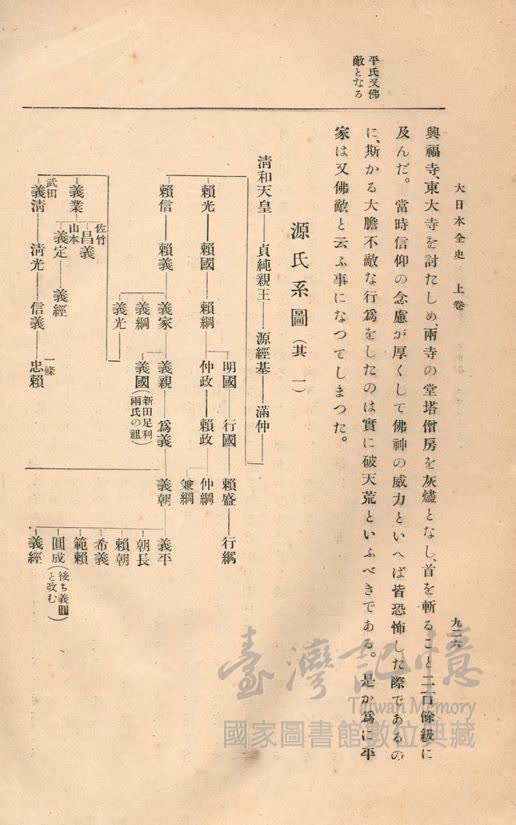 大日本全史 上卷
九二六
平氏又佛
敵となる
興福寺、東大寺を討たしめ、兩寺の堂塔僧房を灰燼となし、首を斬ること二百餘級に
及んだ。當時信仰の念慮が厚くして佛神の威力といへば皆恐怖した際であるの
に、斯かる大膽不敵な行爲をしたのは實に破天荒といふべきである。是が爲に平
家は又佛敵と云ふ事になつてしまつた。
源氏系圖(其一)
清和天皇 貞純親王 源經基 滿仲
明國 行國 賴盛 行綱
賴光 賴國 賴綱 仲政 賴政 仲綱
兼綱
賴信 賴義 義家 義親 爲義 義朝 義平
義國(新田足利
兩氏の祖)
義綱
義光
朝長
賴朝
希義
範賴
圓成(後ち義圓
と改む)
義經
佐竹
昌義
義業
山本
義定 義經
武田
義淸 淸光 信義
一條
忠賴
臺灣記憶
Taiwan Memory
國家圖書館數位典藏